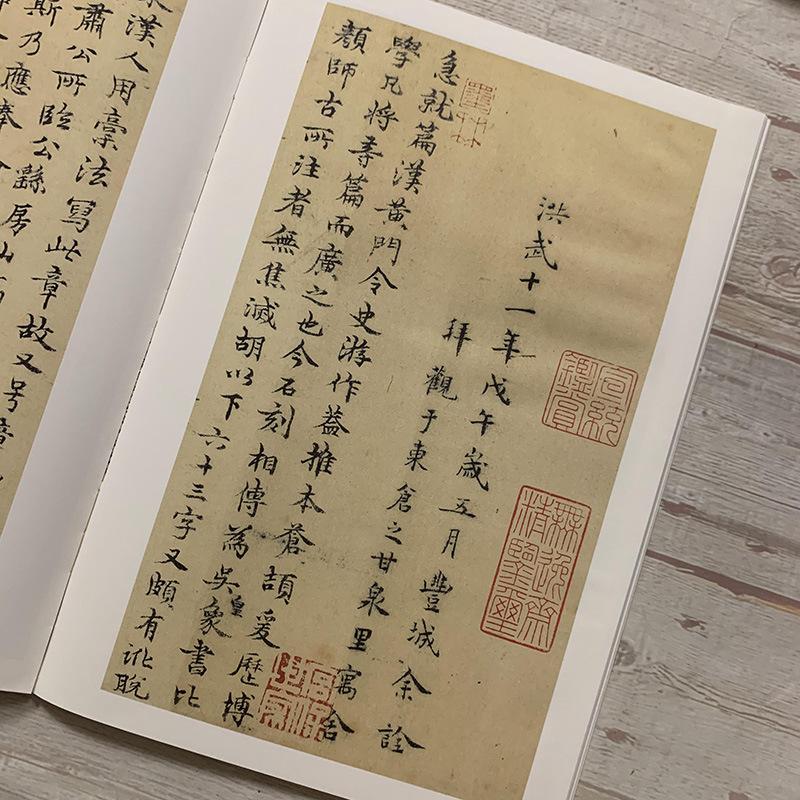 洪武十一年戊午歲五月豐城余詮
拜觀于東倉之甘泉里寓舍
急就篇漢黃門令史游作蓋推本蒼頡爰歷博
學凡將等篇而廣之也今石刻相傳為吳皇象書比
顏師古所注者無焦滅胡以下六十三字又頗有訛脫
墨林
宣統鑑賞
無逸齋精鑒璽
漢人用藁法寫此章故又号章
肅公所臨公繇房山
斯乃應奉